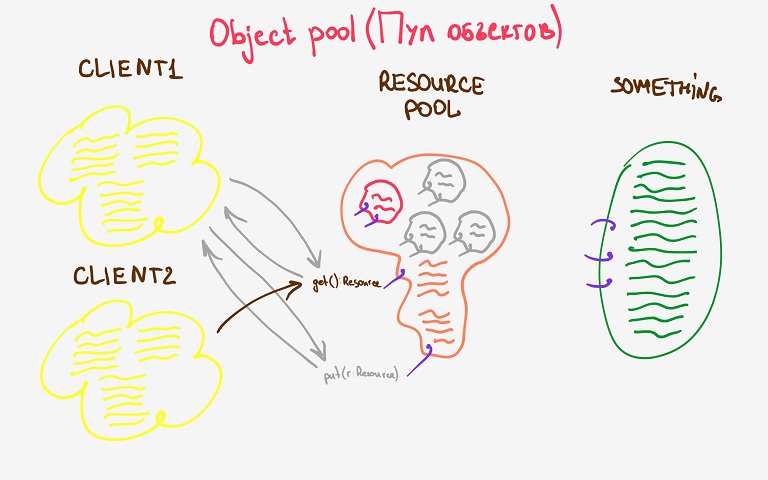 Object pool (Пул объектов)
CLIENT1
RESOURCE
POOL
SOMETHING
CLIENT2
get(): Resource
put(r: Resource)